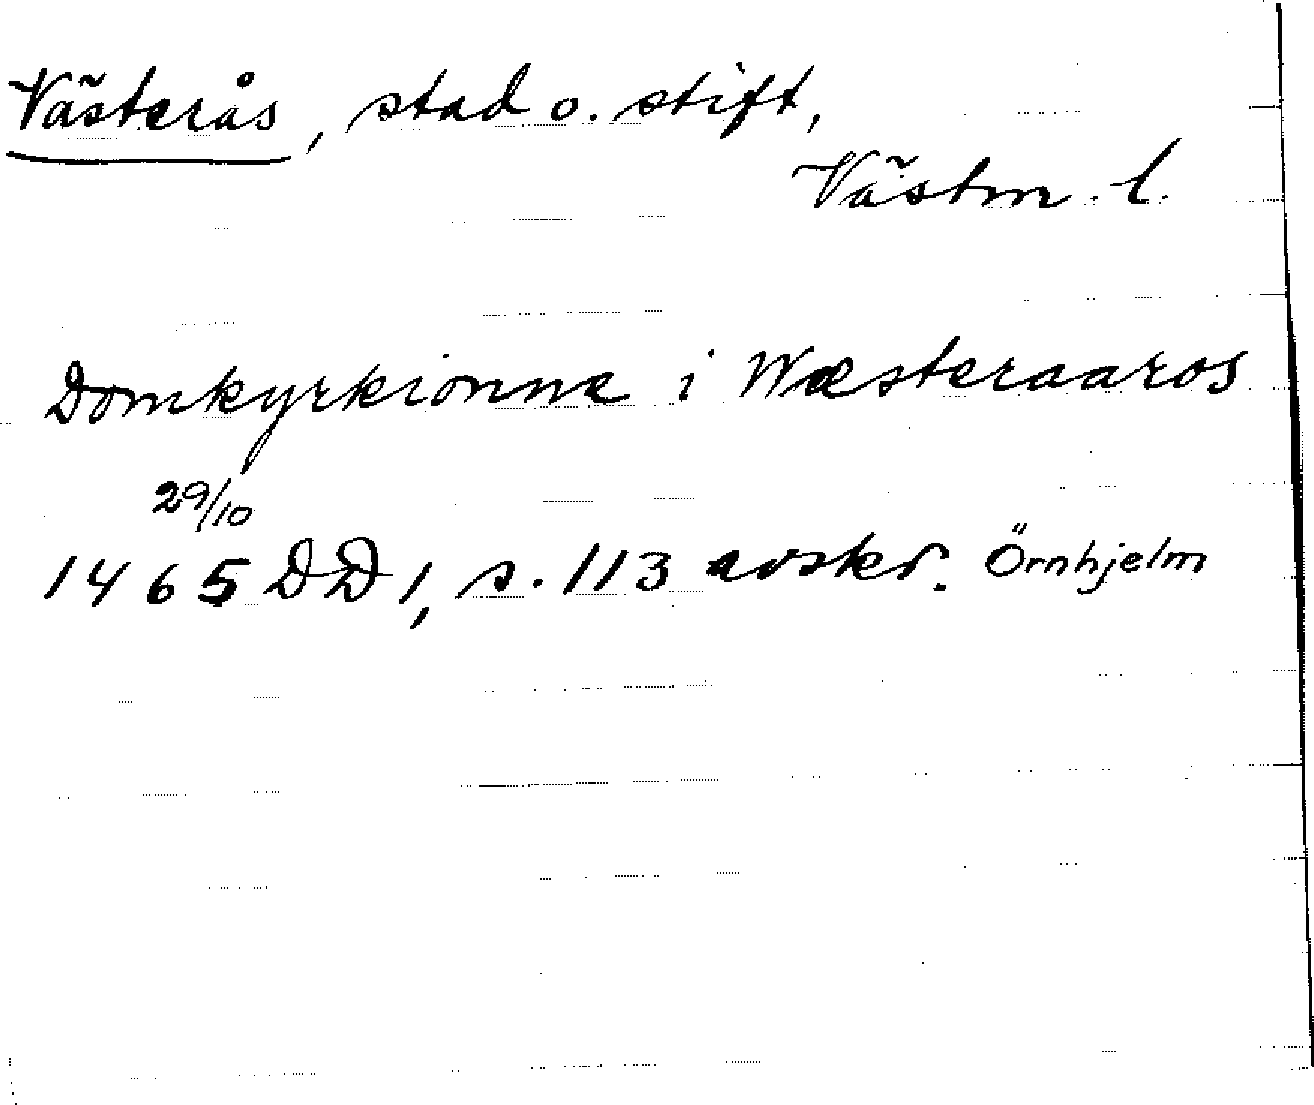 Västerås, stad o. stift,
Västm. l.
Domkyrkionne i Wæsteraaros
29/10
1465 DD 1, s. 113 avskr. Örnhjelm